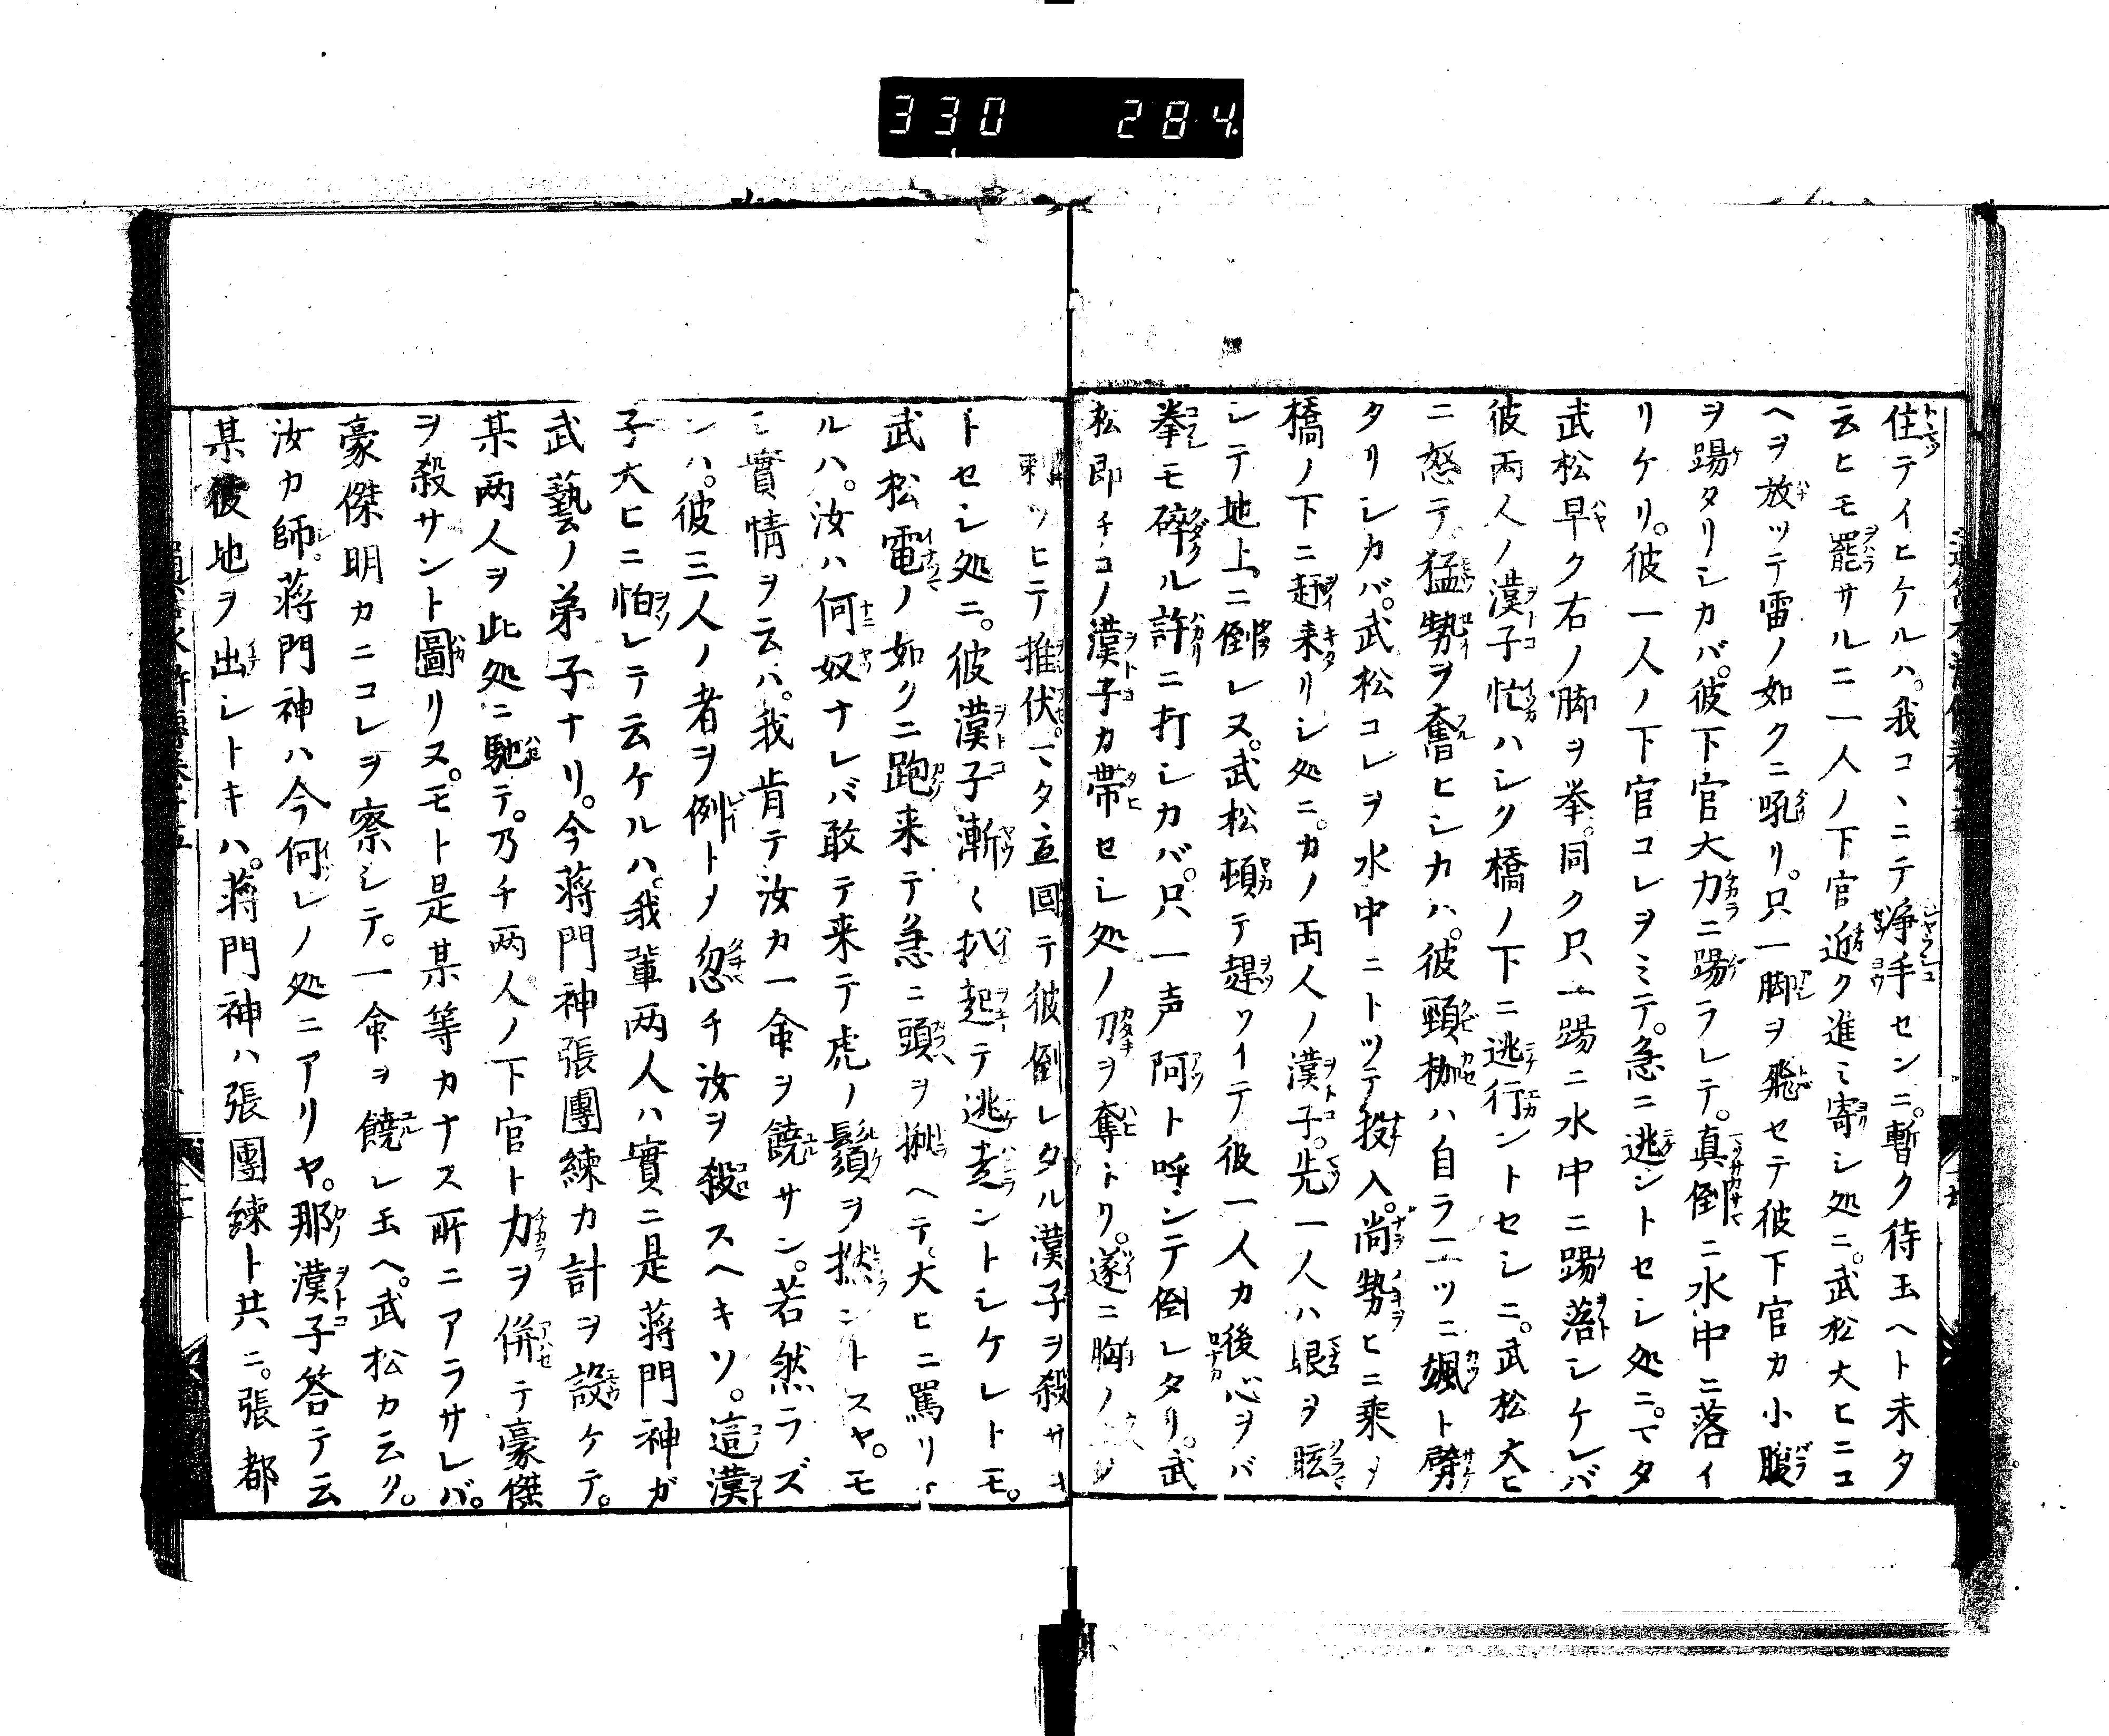 330 284
住テイヒケルハ。我コヽニテ淨手センニ。暫ク待玉ヘト未タ
云ヒモ罷サルニ一人ノ下官近ク進ミ寄シ処ニ。武松大ヒニコ
ヘヲ放ツテ雷ノ如クニ吼リ。只一脚ヲ飛セテ彼下官カ小腹
ヲ踢タリシカバ。彼下官大力ニ踢ラレテ。真倒ニ水中ニ落イ
リケリ。彼一人ノ下官コレヲミテ。急ニ逃ントセシ処ニ。マタ
武松早ク右ノ脚ヲ挙。同ク只一踢ニ水中ニ踢落シケレバ
彼両人ノ漢子忙ハシク橋ノ下ニ逃行ントセシニ。武松大ヒ
ニ怒テ。猛勢ヲ奮ヒシカハ。彼頸枷ハ自ラ二ツニ颯ト劈
タリシカバ。武松コレヲ水中ニトツテ投入。尚勢ヒニ乗メ
橋ノ下ニ趕来リシ処ニ。カノ両人ノ漢子。先一人ハ眼ヲ眩
シテ地上ニ倒レヌ。武松頓テ趕ツイテ彼一人カ後心ヲバ
拳モ碎ル許ニ打シカバ。只一声阿ト呼ンテ倒レタリ。武
松即チコノ漢子カ帯セシ処ノ刀ヲ奪トリ。遂ニ胸ノ
刺ツヒテ推伏。マタ立回テ彼倒レタル漢子ヲ殺サン
トセシ処ニ。彼漢子漸〱扒起テ逃走ントシケレトモ。
武松電ノ如クニ跑来テ急ニ頭ヲ揪ヘテ大ヒニ罵リ
ルハ。汝ハ何奴ナレバ敢テ来テ虎ノ鬚ヲ撚ントスヤ。モ
シ實情ヲ云ハ。我肯テ汝カ一命ヲ饒サン。若然ラズ
ンハ。彼三人ノ者ヲ例トメ忽チ汝ヲ殺スヘキソ。這漢
子大ヒニ怕レテ云ケルハ。我輩两人ハ實ニ是蒋門神ガ
武藝ノ弟子ナリ。今蒋門神張團練カ計ヲ設ケテ。
某两人ヲ此処ニ馳テ。乃チ两人ノ下官ト力ヲ併テ豪傑
ヲ殺サント圖リヌ。モト是某等カナス所ニアラサレバ。
豪傑明カニコレヲ察シテ。一命ヲ饒レ玉ヘ。武松カ云ク。
汝カ師。蒋門神ハ今何レノ処ニアリヤ。那漢子答テ云
某彼地ヲ出シトキハ。蒋門神ハ張團練ト共ニ。張都